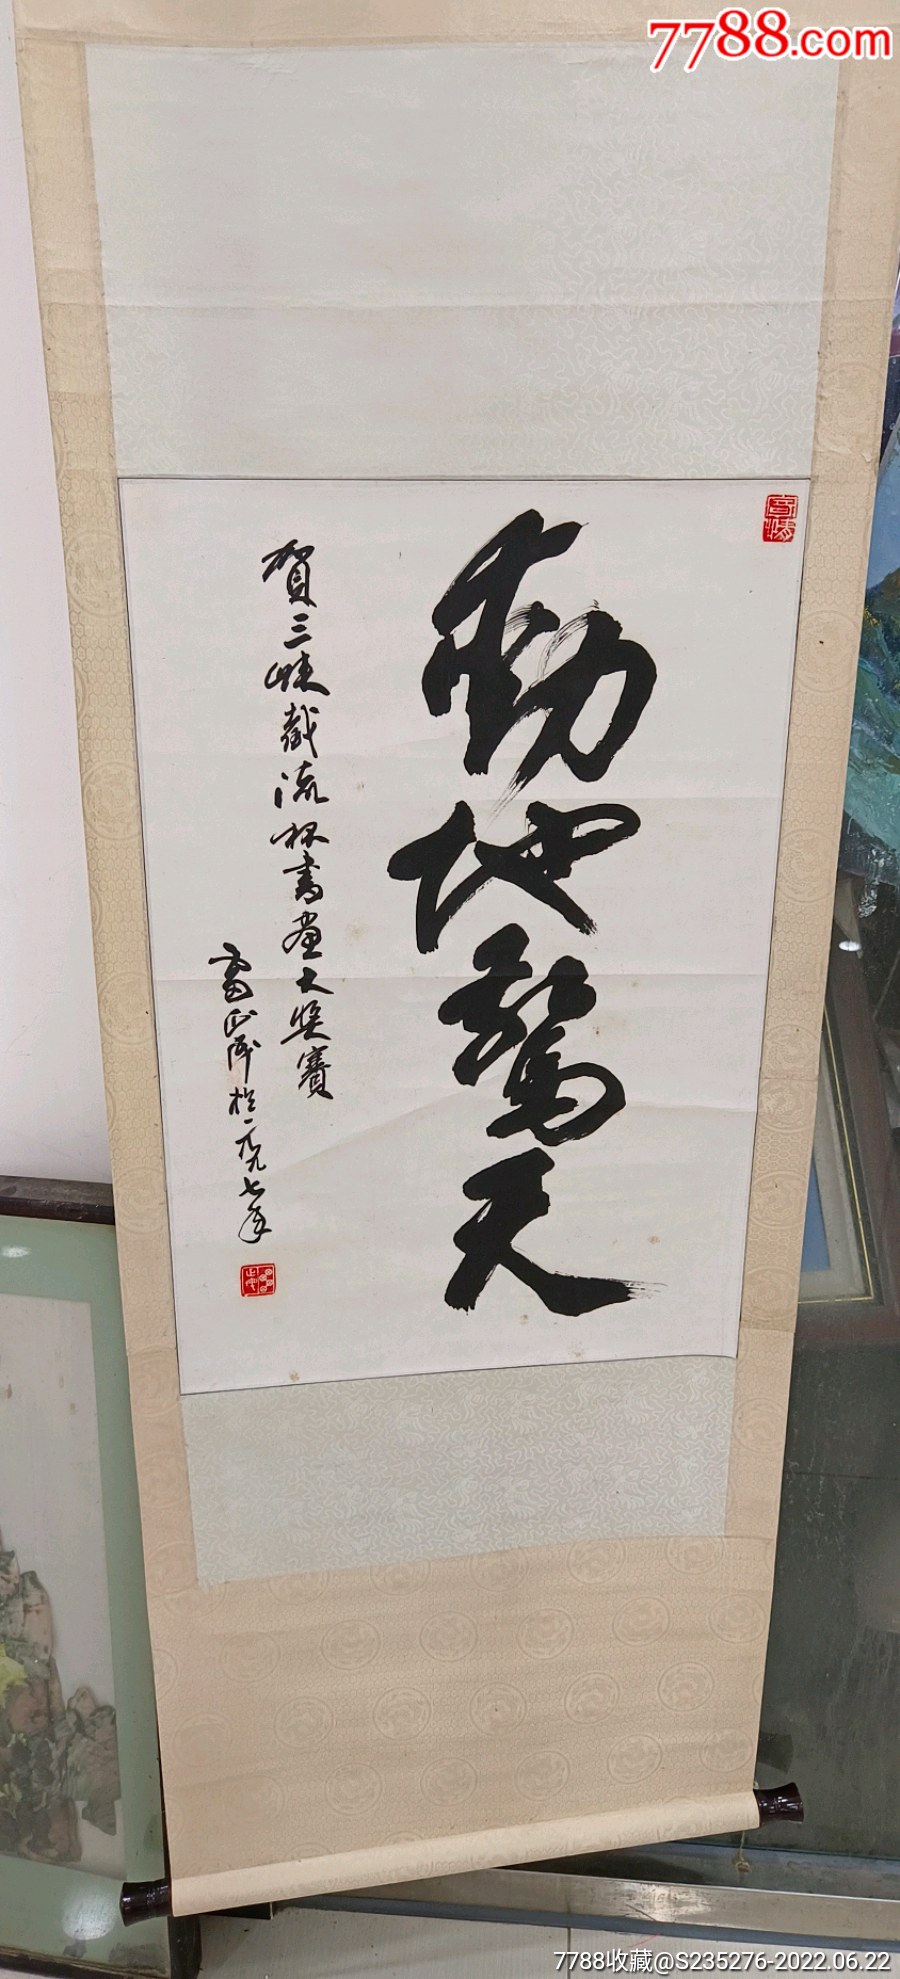 7788.com
動地驚天
賀三峡截流杯書画大奨賽
於一九九七年
7788收藏@S235276-2022.06.22